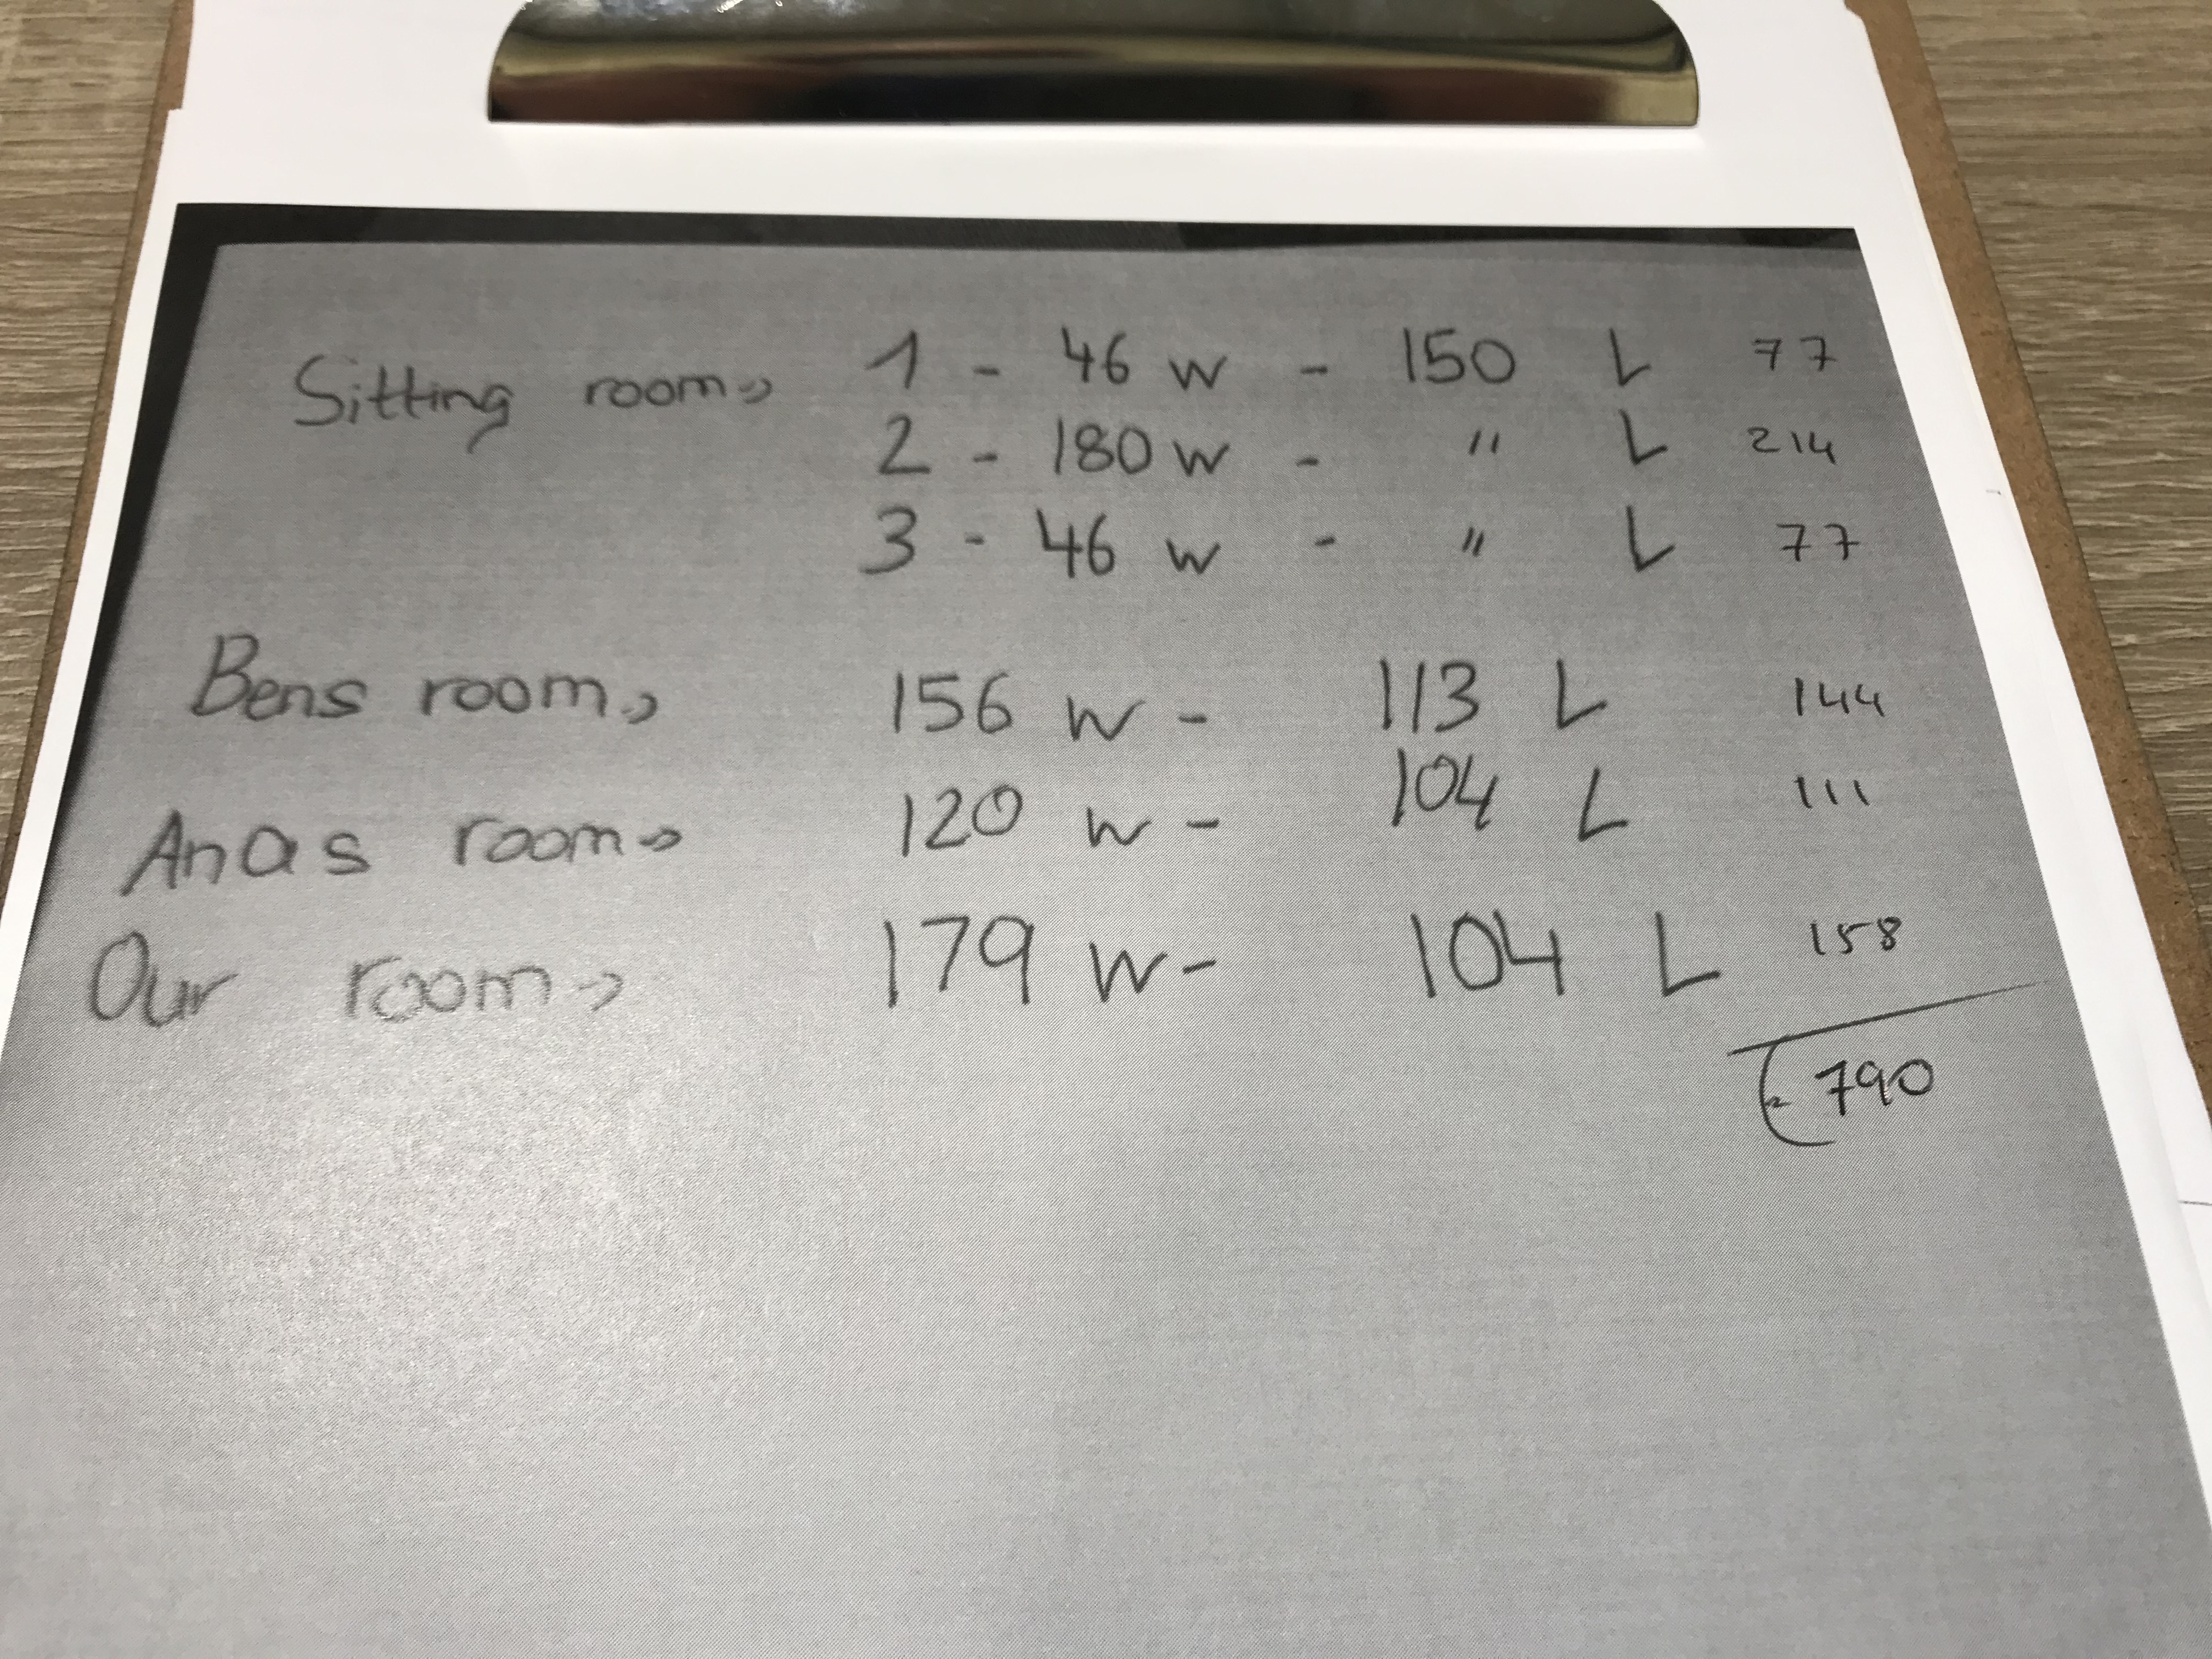 Sitting room → 1 - 46 w - 150 L 77
2 - 180 w - " L 214
3 - 46 w - " L 77
Bens room → 156 w - 113 L 144
Anas room → 120 w - 104 L 111
Our room → 179 w - 104 L 158
€ 790